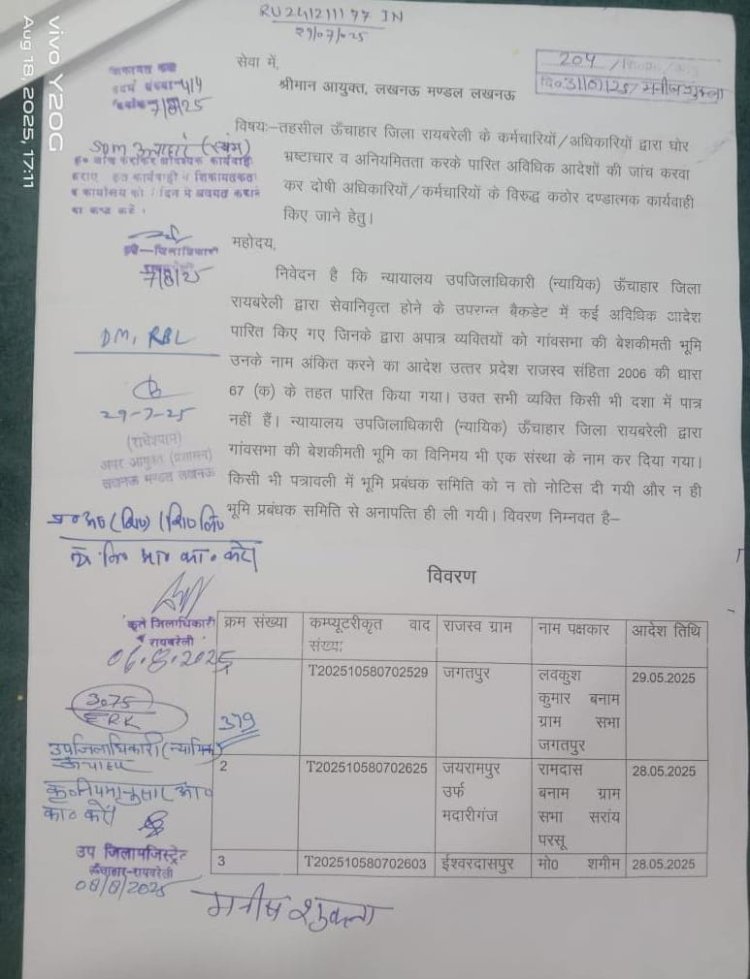 RU241211177 IN
29/07/025
सेवा में,
श्रीमान आयुक्त, लखनऊ मण्डल लखनऊ
204
दि०31/07/25/ मनीष शुक्ला
7/8/25
विषयः–तहसील ऊँचाहार जिला रायबरेली के कर्मचारियों/अधिकारियों द्वारा घोर
भ्रष्टाचार व अनियमितता करके पारित अविधिक आदेशों की जांच करवा
कर दोषी अधिकारियों/कर्मचारियों के विरुद्ध कठोर दण्डात्मक कार्यवाही
किए जाने हेतु।
महोदय,
निवेदन है कि न्यायालय उपजिलाधिकारी (न्यायिक) ऊँचाहार जिला
रायबरेली द्वारा सेवानिवृत्त होने के उपरान्त बैकडेट में कई अविधिक आदेश
पारित किए गए जिनके द्वारा अपात्र व्यक्तियों को गांवसभा की बेशकीमती भूमि
उनके नाम अंकित करने का आदेश उत्तर प्रदेश राजस्व संहिता 2006 की धारा
67 (क) के तहत पारित किया गया। उक्त सभी व्यक्ति किसी भी दशा में पात्र
नहीं हैं। न्यायालय उपजिलाधिकारी (न्यायिक) ऊँचाहार जिला रायबरेली द्वारा
गांवसभा की बेशकीमती भूमि का विनिमय भी एक संस्था के नाम कर दिया गया।
किसी भी पत्रावली में भूमि प्रबंधक समिति को न तो नोटिस दी गयी और न ही
भूमि प्रबंधक समिति से अनापत्ति ही ली गयी। विवरण निम्नवत है–
SDM ऊंचाहार (स्वयम)
उप–जिलाधिकारी
7/8/25
DM, RBL
29-7-25
(राधेश्याम)
अपर आयुक्त (प्रशासन)
लखनऊ मण्डल लखनऊ
कृते जिलाधिकारी
रायबरेली
06.8.2025
3075
ERK
379
उपजिलाधिकारी (न्यायिक)
ऊंचाहार
कृ० नियमानुसार आ०
का० करें।
उप जिलामजिस्ट्रेट
ऊँचाहार-रायबरेली
08/8/2025
विवरण
क्रम संख्या कम्प्यूटरीकृत वाद संख्या राजस्व ग्राम नाम पक्षकार आदेश तिथि
1 T202510580702529 जगतपुर लवकुश कुमार बनाम ग्राम सभा जगतपुर 29.05.2025
2 T202510580702625 जयरामपुर उर्फ मदारीगंज रामदास बनाम ग्राम सभा सरांय परसू 28.05.2025
3 T202510580702603 ईश्वरदासपुर मो0 शमीम 28.05.2025
मनीष शुक्ला
vivo Y20G
Aug 18, 2025, 17:11